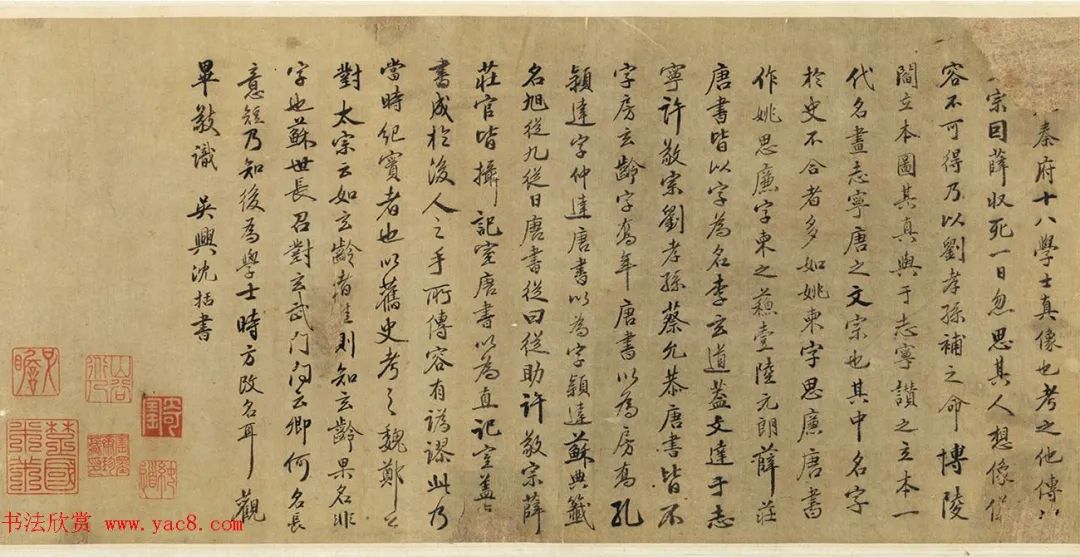 秦府十八學士真像也考之他傳
宗曰薛收死一日忽思其人想像儀
容不可得乃以劉孝孫補之命博陵
閻立本圖其真與于志寧讃之立本一
代名畫志寧唐之文宗也其中名字
於史不合者多如姚柬字思廉唐書
作姚思廉字柬之蘓壹陸元朗薛莊
唐書皆以字為名李玄道蓋文達于志
寧許敬宗劉孝孫蔡允恭唐書皆不
字房玄齡字喬年唐書以為房喬孔
穎達字仲達唐書以為字穎達蘇典籤
名旭從九從日唐書從曰從助許敬宗薛
莊官皆攝記室唐書以為直記室蓋
書成於後人之手所傳容有譌謬此乃
當時紀實者也以舊史考之魏鄭公
對太宗云如玄齡者則知玄齡果名非
字也蘇世長召對玄武門門云卿何名長
意短乃知後為學士時方改名耳觀
畢敬識 吳興沈括書
书法欣赏 www.yac8.com